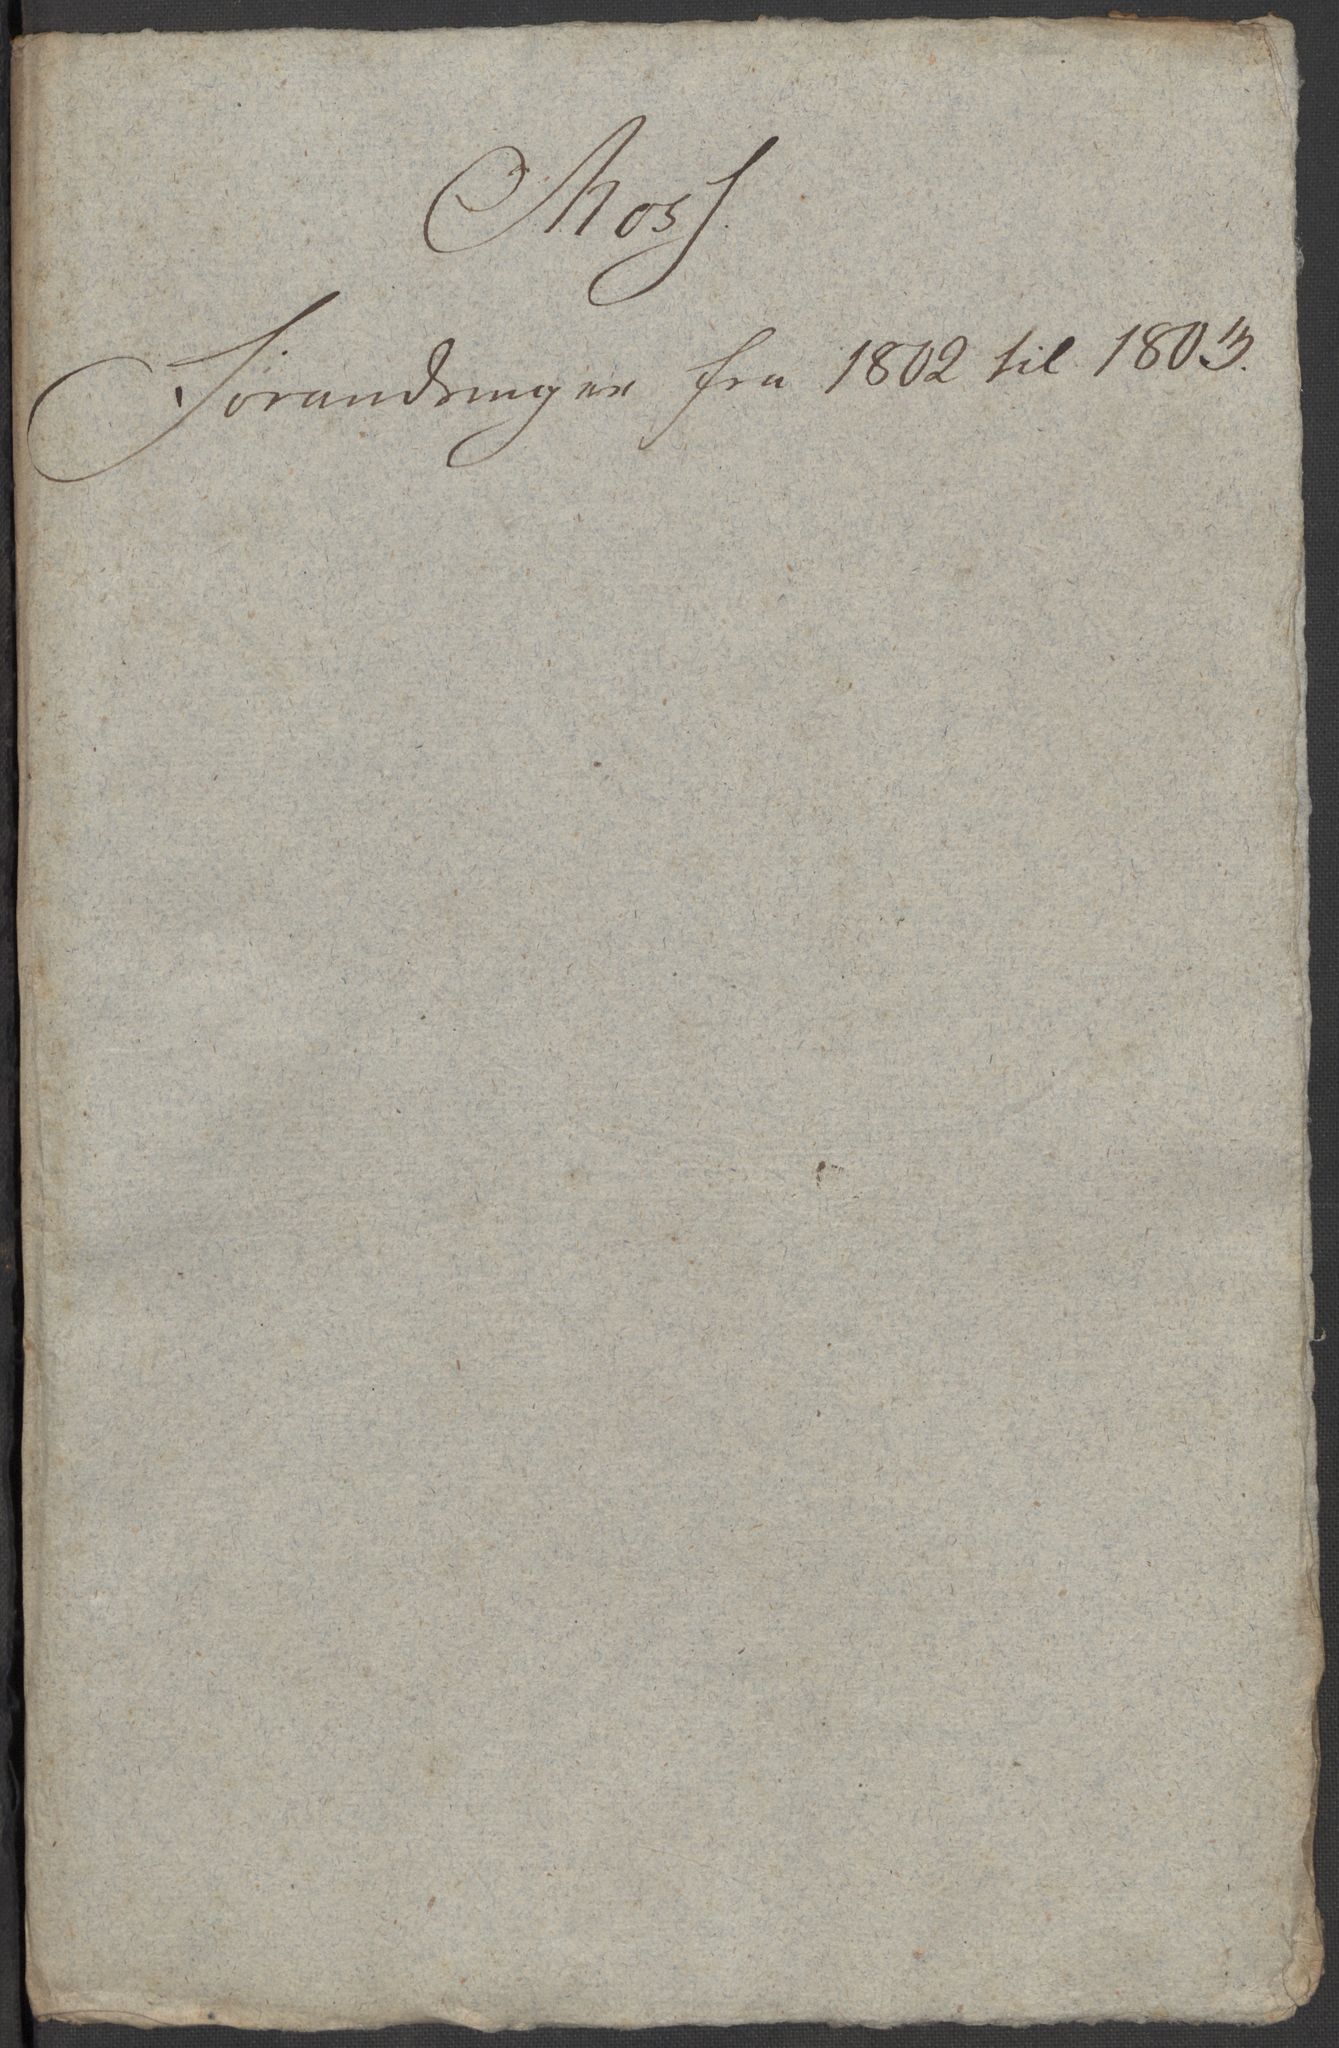 Moss.
Forandringer fra 1802 til 1803.